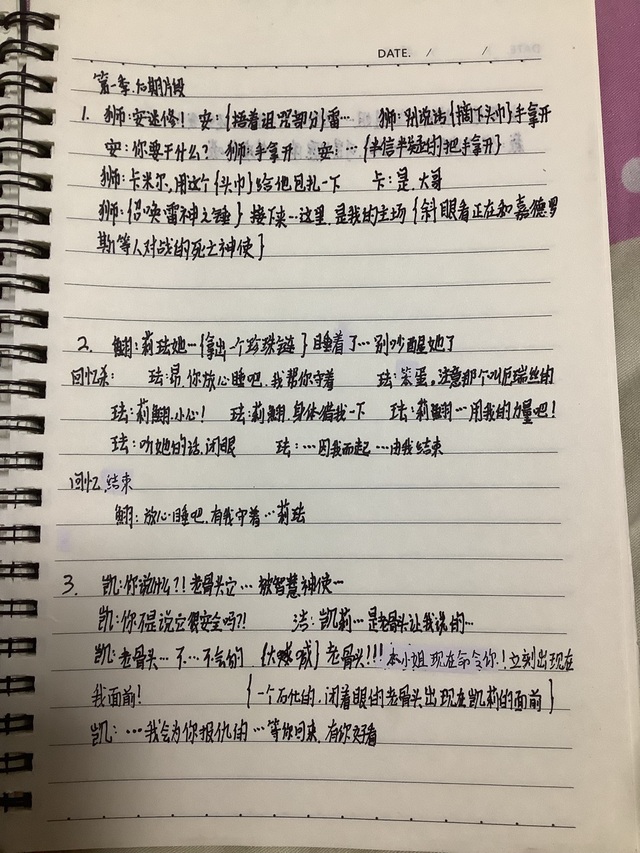 DATE. / /
第一季.后期片段
1. 狮:安迷修! 安:{捂着诅咒部分}雷… 狮:别说话{摘下头巾}手拿开
安:你要干什么? 狮:手拿开 安:…{半信半疑的把手拿开}
狮:卡米尔,用这个{头巾}给他包扎一下 卡:是,大哥
狮:{召唤雷神之锤}接下来…这里,是我的主场{斜眼看正在和嘉德罗
斯等人对战的死亡神使}
2. 鲷:莉珐她…{拿出一个珍珠链}睡着了…别吵醒她了
回忆杀: 珐:昂,你放心睡吧,我帮你守着 珐:笨蛋。注意那个叫厄瑞丝的
珐:莉鲷,小心! 珐:莉鲷,身体借我一下 珐:莉鲷…用我的力量吧!
珐:听她的话,闭眼 珐:…因我而起…由我结束
回忆,结束
鲷:放心睡吧,有我守着…莉珐
3. 凯:你说什么?!老骨头它…被智慧神使…
凯:你不是说它很安全吗?! 洁:凯莉…是老骨头让我说的…
凯:老骨头…不…不会的{大喊}老骨头!!!本小姐现在命令你!立刻出现在
我面前! {一个石化的,闭着眼的老骨头出现在凯莉的面前}
凯:…我会为你报仇的…等你回来,有你好看